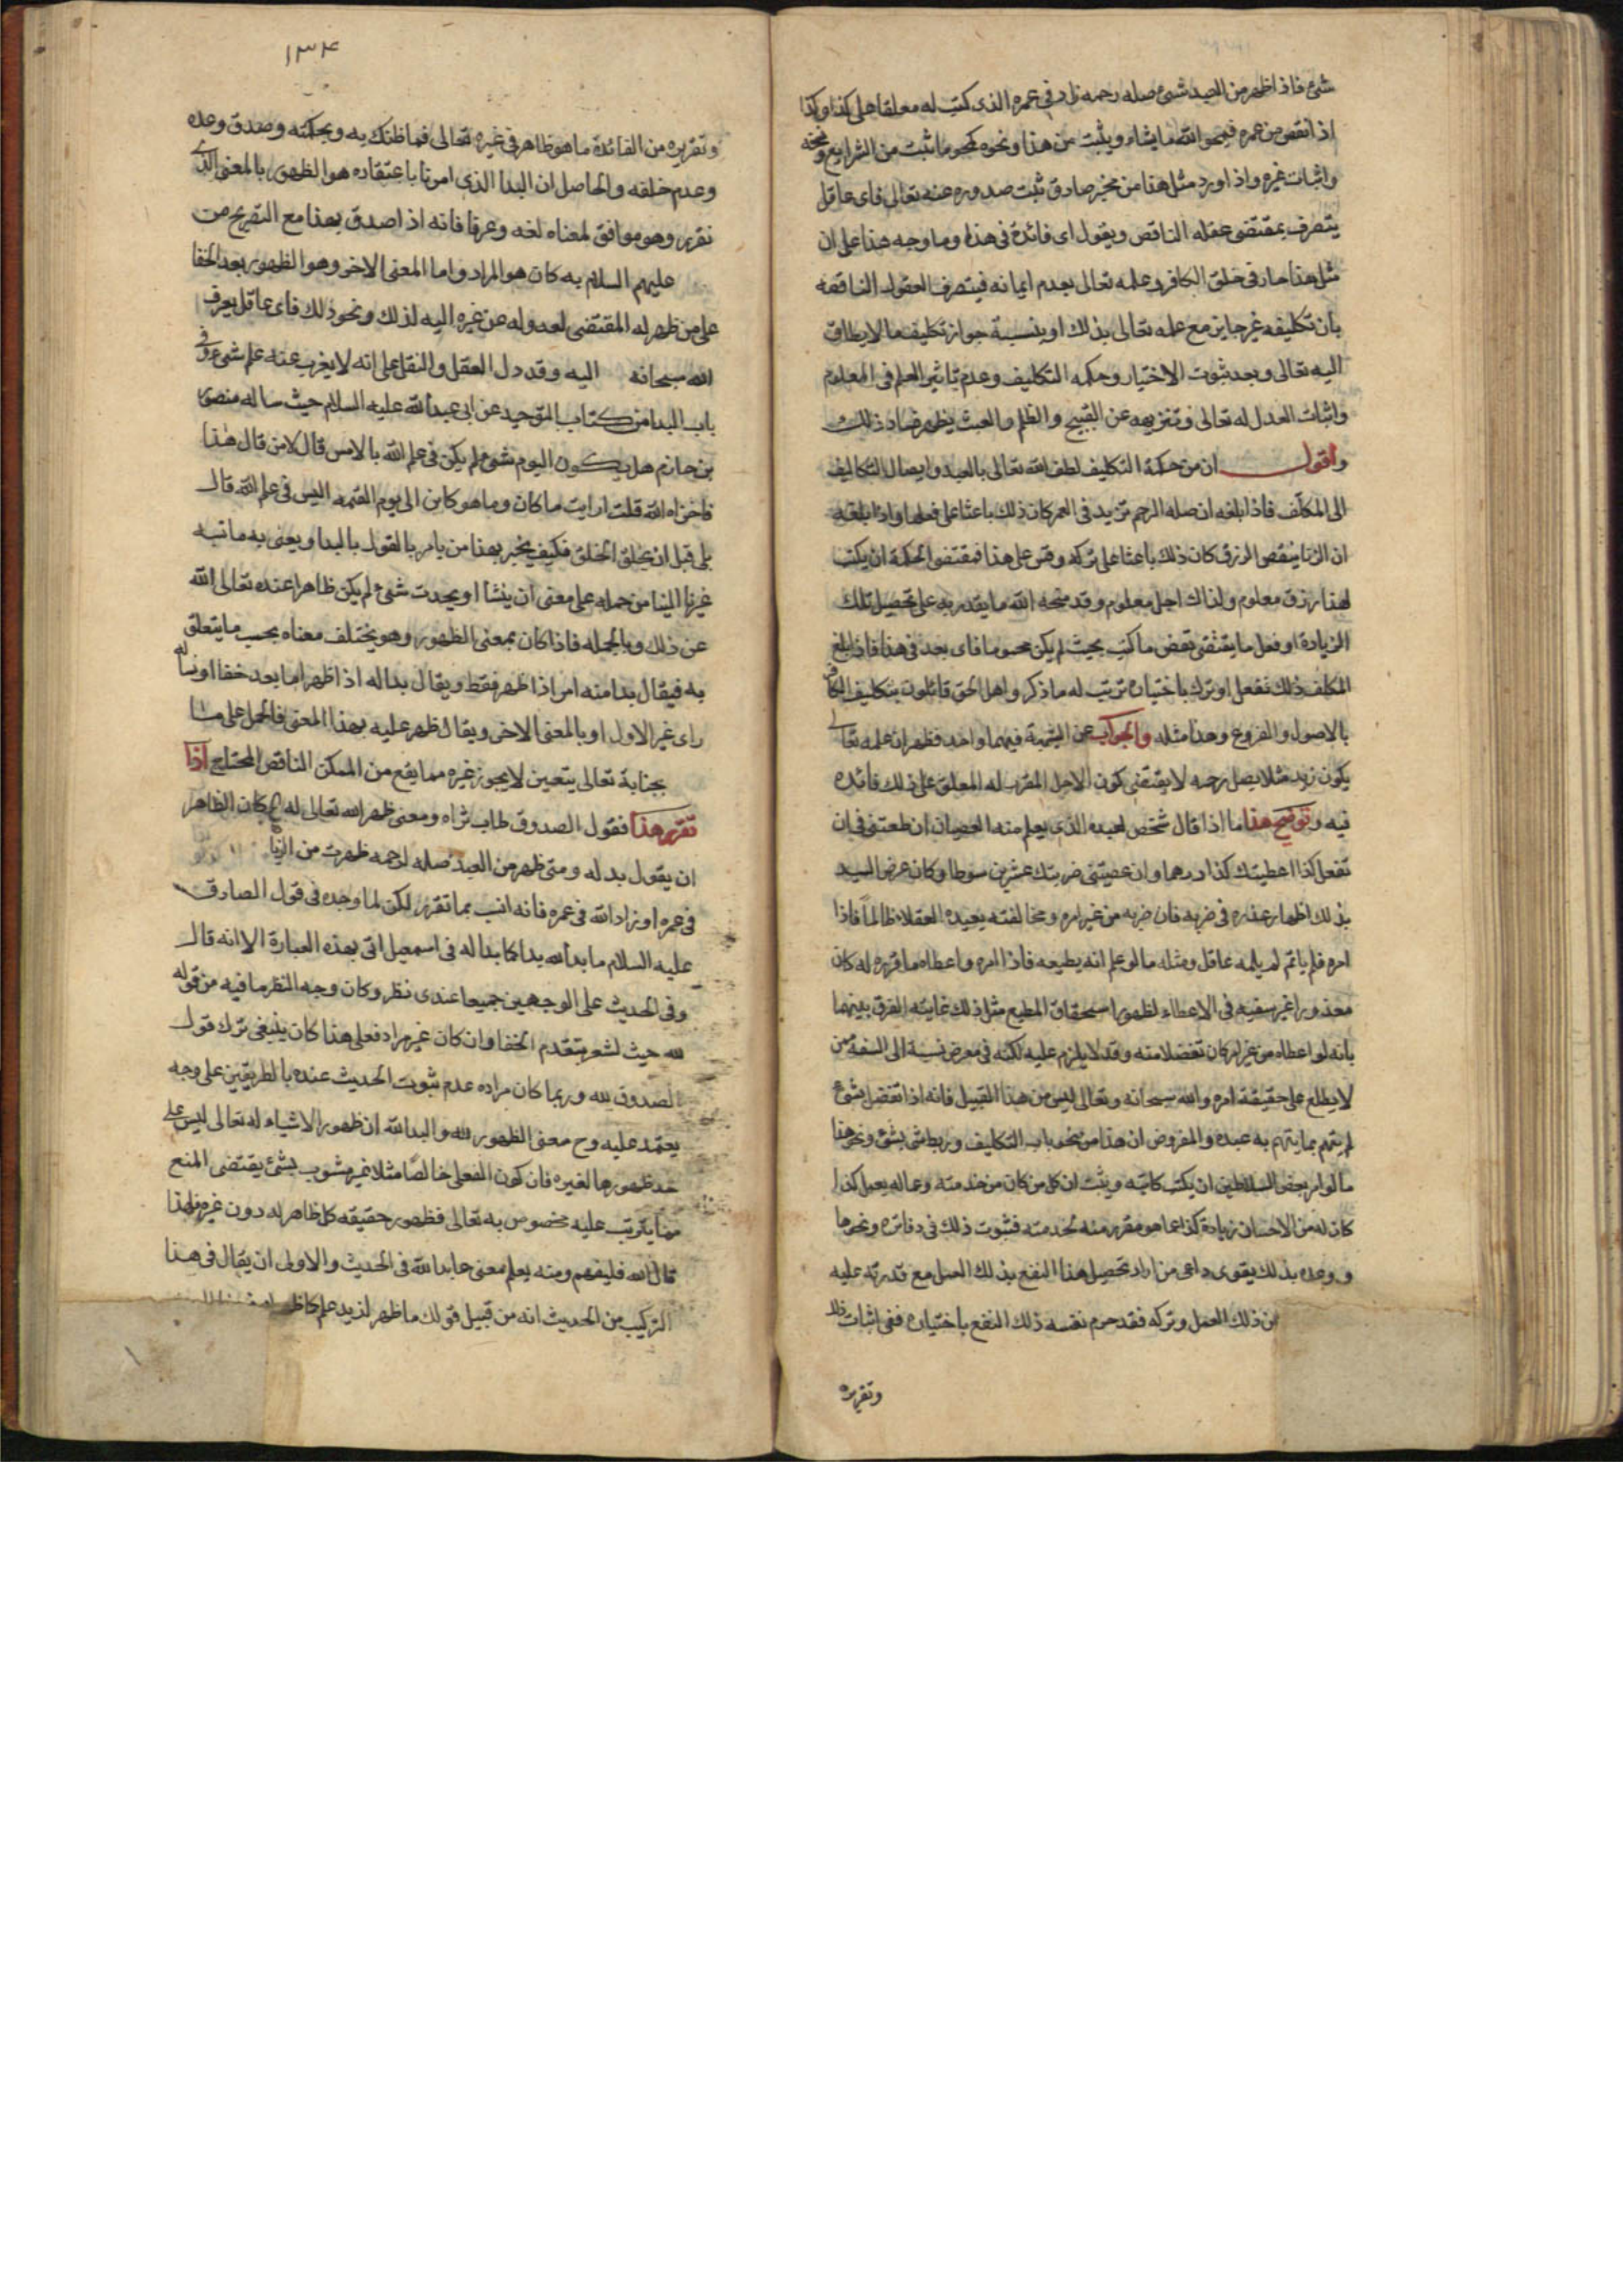 شئ فاذا ظهر من العبد شئ صله رحمه زاد في عمره الذي كتب له معلقا على كذا وكذا
اذا نقص من عمره فيمحوا الله ما يشاء ويثبت من هذا ونحوه كمحو ما اثبت من الشرايع ونسخه
واثبات غيره واذا اورد مثل هذا من مخبر صادق ثبت صدوره عنه تعالى فاى عاقل
يتصرف بمقتضى عقله الناقص ويقول اى فائدة في هذا وما وجه هذا على ان
مثل هذا جار في خلق الكافر وعلمه تعالى بعدم ايمانه فيتصرف العقول الناقصه
بان تكليفه غير جايز مع علمه تعالى بذلك او بنسبة جواز تكليف ما لا يطاق
اليه تعالى وبعد ثبوت الاختيار وحكمه التكليف وعدم تاثير العلم في المعلوم
واثبات العدل له تعالى وتنزيهه عن القبيح والظلم والعبث يظهر فساد ذلك
واقول ان من حكمة التكليف لطف الله تعالى بالعبد وايصال التكاليف
الى المكلف فاذا بلغه ان صله الرحم تزيد في العمر كان ذلك باعثا على فعلها واذا بلغه
ان الزنا ينقص الرزق كان ذلك باعثا على تركه وقس على هذا فمقتضى الحكمة ان يكتب
لهذا رزق معلوم ولذاك اجل معلوم وقد منحه الله ما يقدر به على تحصيل تلك
الزيادة او فعل ما يقتضى نقص ما كتب بحيث لم يكن محسوما فاى بعد في هذا فاذا بلغ
المكلف ذلك ففعل او ترك باختياره ترتب له ما ذكر واهل الحق قائلون بتكليف الكافر
بالاصول والفروع وهذا مثله والجواب عن الشبهة فيهما واحد فظهر ان علمه تعالى
يكون زيد مثلا يصل رحمه لا يقتضى كون الاجل المقرر له المعلق على ذلك فائده
فيه وتوضيح هذا ما اذا قال شخص لعبده الذي يعلم منه العصيان ان طعتنى في ان
تفعل كذا اعطيتك كذا درهما وان عصيتنى ضربتك عشرين سوطا وكان غرض السيد
بذلك اظهار عذره في ضربه فان ضربه من غير امره ومخالفته يعيده العقلاء ظالما فاذا
امره فلم ياتم لم يلمه عاقل ومثله ما لو علم انه يطيعه فاذا امره واعطاه ما قرره له كان
معذورا غير سفيه في الاعطاء لظهور استحقاق المطيع مثل ذلك غايته الفرق بينهما
بانه لو اعطاه من غير امر كان تفضلا منه وقد لا يلزم عليه لكنه في معرض نسبة الى السفه ممن
لا يطلع على حقيقة امره والله سبحانه وتعالى ليس من هذا القبيل فانه اذا تفضل بشئ
لم يتهم بما يتهم به عبده والمفروض ان هذا من نحو باب التكاليف وربط شئ بشئ ونحو هذا
ما لو امر بعض السلاطين ان يكتب كاتبه ويثبت ان كل من كان من خدمته وعماله يعمل كذا
كان له من الاحسان زيادة كذا عما هو مقرر منه لخدمته فثبوت ذلك في دفاتره ونحوها
ووعده بذلك يقوى داعى من اراد تحصيل هذا النفع بذلك العمل مع قدرته عليه
من ذلك العمل وتركه فقد حرم نفسه ذلك النفع باختياره ففى اثبات ذلك
وتقريره
١٣٤
وتقريره من الفائدة ما هو ظاهر في غيره تعالى فما ظنك به وبحكمته وصدق وعده
وعدم خلفه والحاصل ان البدا الذى امرنا باعتقاده هو الظهور بالمعنى الذى
نقرر وهو موافق لمعناه لغه وعرفا فانه اذا صدق بهذا مع التصريح من
عليهم السلام به كان هو المراد واما المعنى الاخر وهو الظهور بعد الخفا
على من ظهر له المقتضى لعدوله عن غيره اليه لذلك ونحو ذلك فاى عاقل يعرف
الله سبحانه اليه وقد دل العقل والنقل على انه لا يعزب عنه علم شئ وفى
باب البدا من كتاب التوحيد عن ابى عبد الله عليه السلام حيث ساله منصور
بن حازم هل يكون اليوم شئ لم يكن في علم الله بالامس قال لا من قال هذا
فاخزاه الله قلت ارايت ما كان وما هو كائن الى يوم القيمه اليس في علم الله قال
بلى قبل ان يخلق الخلق فكيف يخبر بهذا من يامر بالقول بالبدا ويعنى به ما نسبه
غيرنا الينا من حمله على معنى ان ينشأ او يحدث شئ لم يكن ظاهرا عنده تعالى الله
عن ذلك وبالجمله فاذا كان بمعنى الظهور وهو يختلف معناه بحسب ما يتعلق
به فيقال بدا منه امر اذا ظهر فقط ويقال بدا له اذا ظهر له ما بعد خفا او نشأ له
راى غير الاول او بالمعنى الاخر ويقال ظهر عليه بهذا المعنى فالحمل على ما
بجنابه تعالى يتعين لا يجوز غيره مما يقع من الممكن الناقص المحتاج اذا
تقرر هذا فقول الصدوق طاب ثراه ومعنى ظهر الله تعالى له كان الظاهر
ان يقول بدله ومتى ظهر من العبد صله لرحمه ظهرت من الزنا
في عمره او زاد الله في عمره فانه انسب بما تقرر لكن لما وجده في قول الصادق
عليه السلام ما بدا لله بدا كما بدا له في اسمعيل اتى بهذه العبارة الا انه قال
وفى الحديث على الوجهين جميعا عندى نظر وكان وجه النظر ما فيه من قوله
لله حيث لشعر بتقدم الخفا وان كان غير مراد فعلى هذا كان ينبغى ترك قول
لصدوق لله وربما كان مراده عدم ثبوت الحديث عنده بالطريقين على وجه
يعتمد عليه وح معنى الظهور لله والبدا لله ان ظهور الاشياء له تعالى ليس على
حد ظهورها لغيره فان كون الفعلى خالصا مثلا غير مشوب بشئ يقتضى المنع
مما يترتب عليه مخصوص به تعالى فظهور حقيقه كل ظاهر له دون غيره فلهذا
قال لله فليفهم ومنه يعلم معنى ما بدا لله في الحديث والاولى ان يقال في هذا
التركيب من الحديث انه من قبيل قولك ما ظهر لزيد علم كما ظهر